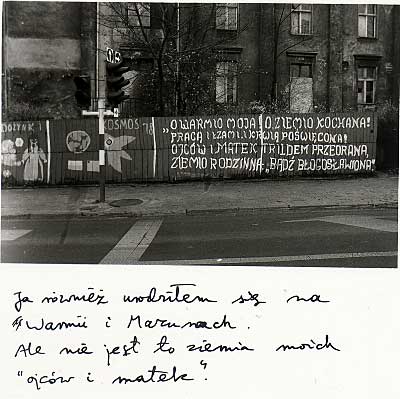 DOŻYNKI
KOSMOS 78
„O WARMIO MOJA! O ZIEMIO KOCHANA!
PRACĄ I ŁZAMI, I KRWIĄ POŚWIĘCONA!
OJCÓW I MATEK TRUDEM PRZEORANA,
ZIEMIO RODZINNA, BĄDŹ BŁOGOSŁAWIONA"
Ja również urodziłem się na
"Warmii i Mazurach.
Ale nie jest to ziemia moich
"ojców i matek".